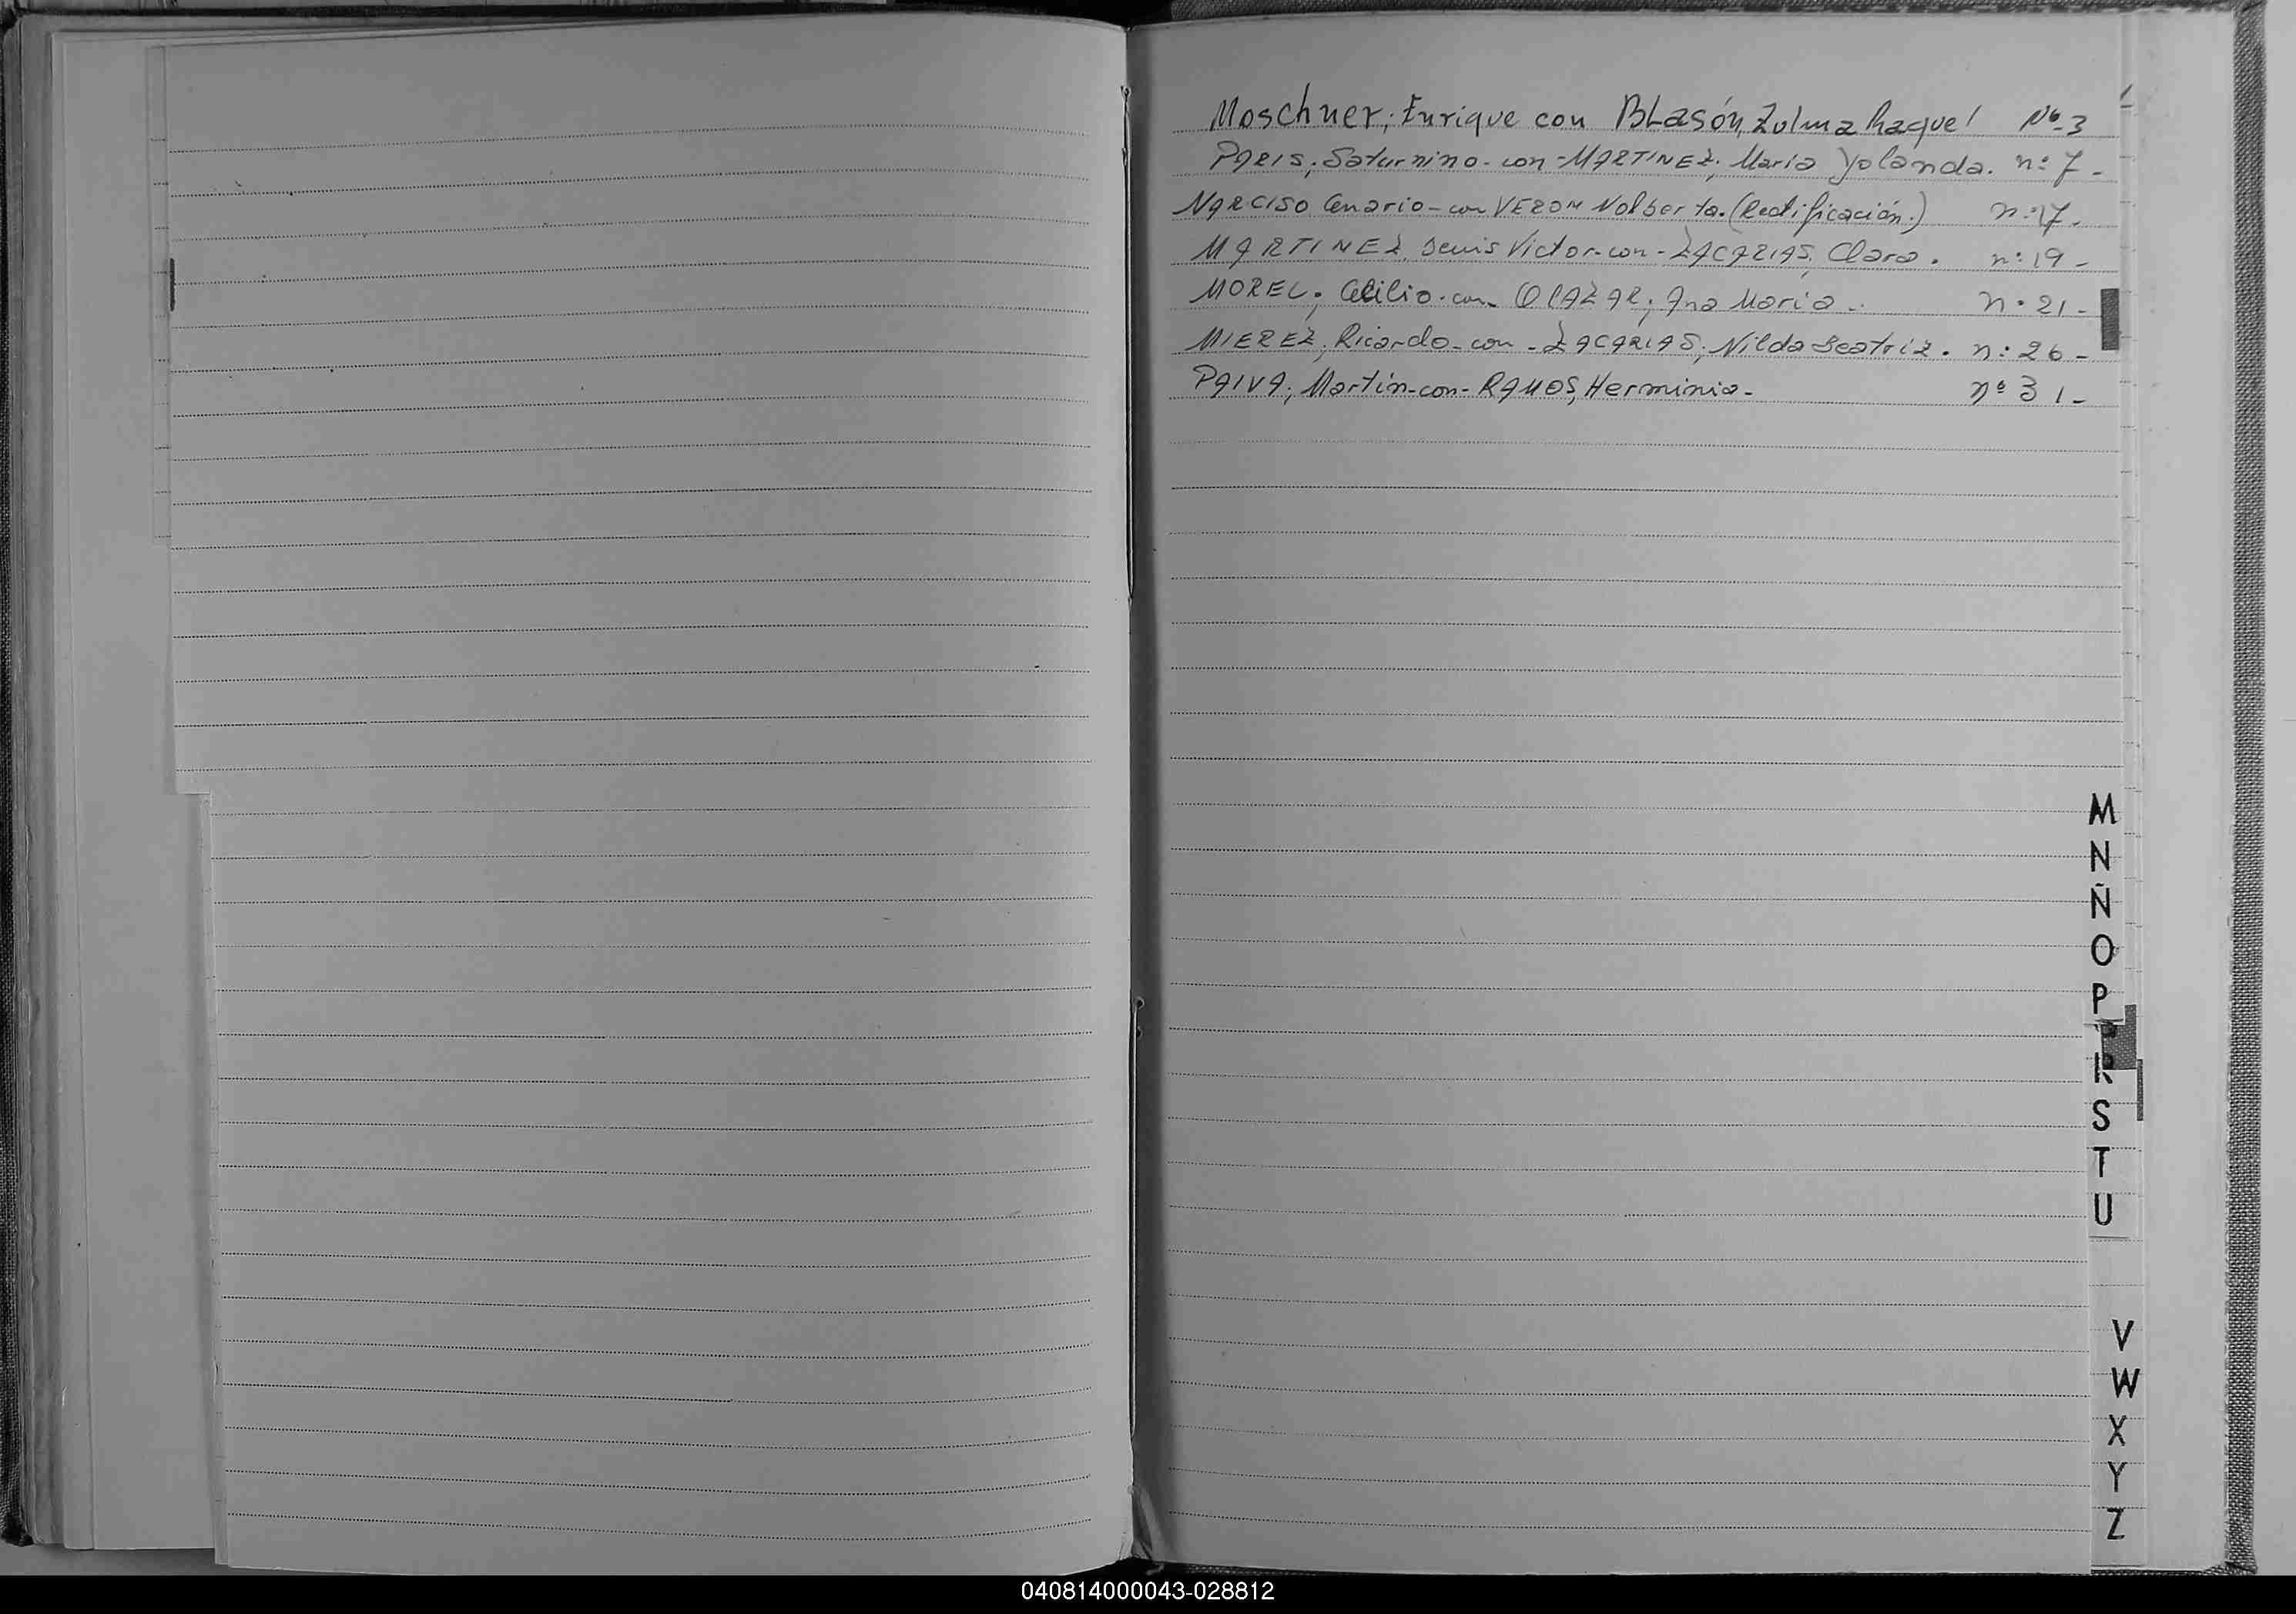 Moschner, Enrique con BLasón, Zulma Raquel Nº 3
PARIS, Saturnino - con - MARTINEZ, María Yolanda. n: 7 -
NARCISO Cenario - con VERON Nolberta. (Rectificación.) n: 17.
MARTINEZ, Denis Victor - con - ZACARIAS, Clara. n: 19 -
MOREL, Cecilio - con OLAZAR, Ana María. n: 21 -
MIEREZ, Ricardo - con - ZACARIAS, Nilda Beatriz. n: 26 -
PAIVA, Martín - con - RAMOS, Herminia - nº 31 -
M
N
Ñ
O
P
R
S
T
U
V
W
X
Y
Z
040814000043-028812